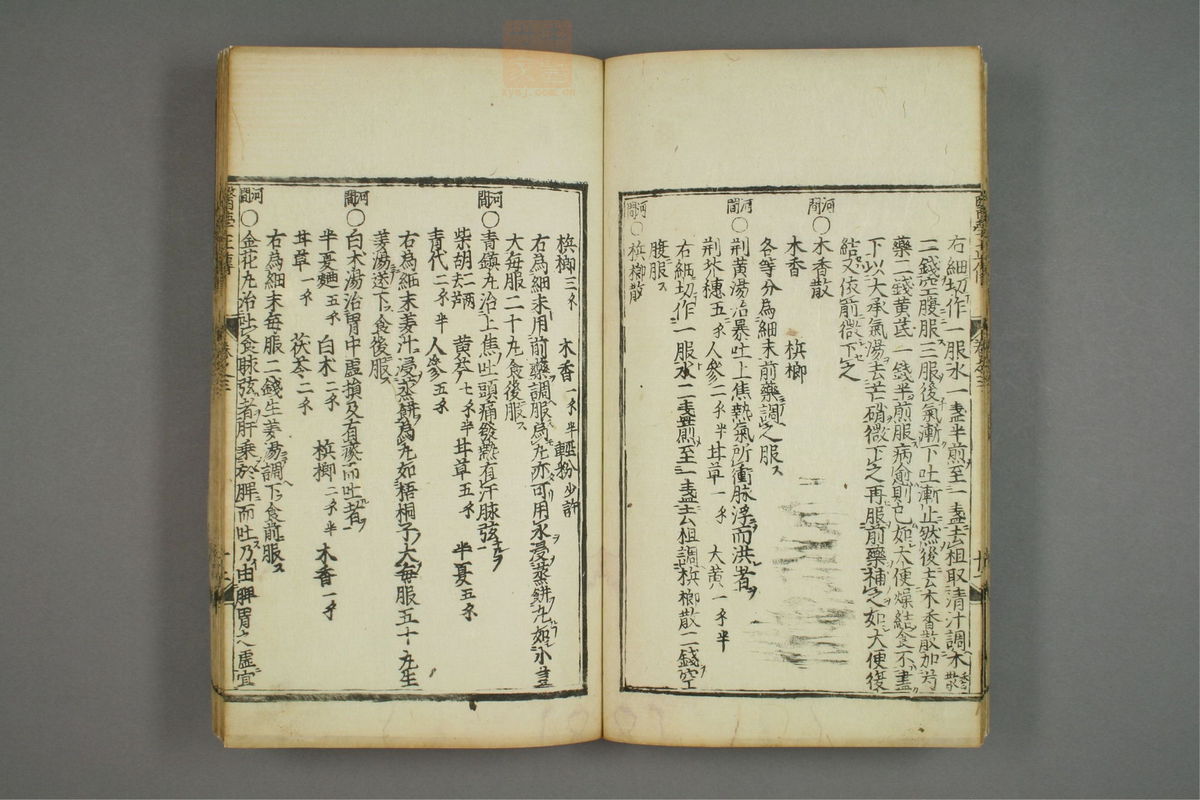 右細切作一服水一盞半煎至一盞去柤取清汁調木香散
二錢空腹服三服後氣漸下吐漸止然後去木香散加芍
藥二錢黄芪一錢半煎服病愈則已如大便燥結食不盡
下以大承氣湯去芒硝微下之再服前藥補之如大便復
結又依前微下之
河間○木香散
木香 梹榔
各等分為細末前藥調之服ス
河間○荆黄湯治暴吐上焦熱氣所衝脉浮而洪者
荆芥穗五錢 人參二錢半 甘草一錢 大黄一錢半
右細切作一服水二盞煎至一盞去柤調梹榔散二錢空
腹服ス
河間○梹榔散
梹榔三錢 木香一錢半 輕粉少許
右為細末用前藥調服為丸亦可用水浸蒸餅丸如小豆
大每服二十丸食後服ス
河間○青鎮丸治上焦吐頭痛發熱有汗脉弦
柴胡二兩去芦 黄芩七錢半 甘草五錢 半夏五錢
青代二錢半 人參五錢
右為細末姜汁浸蒸餅為丸如梧桐子大每服五十丸生
姜湯送下食後服ス
河間○白木湯治胃中虚損及有痰而吐者
半夏麯五錢 白木二錢 梹榔二錢半 木香一錢
甘草一錢 茯苓二錢
右為細末每服二錢生姜湯調下食前服ス
河間○金花丸治吐食脉弦者肝乗於脾而吐乃由脾胃之虚宜